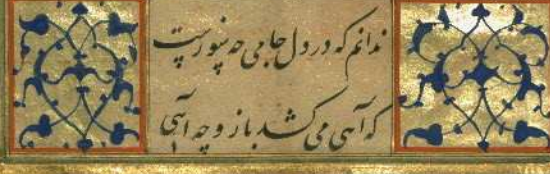 ندانم که در دل جامی چه سوزست
که آهی می کشد باز و چه آهی